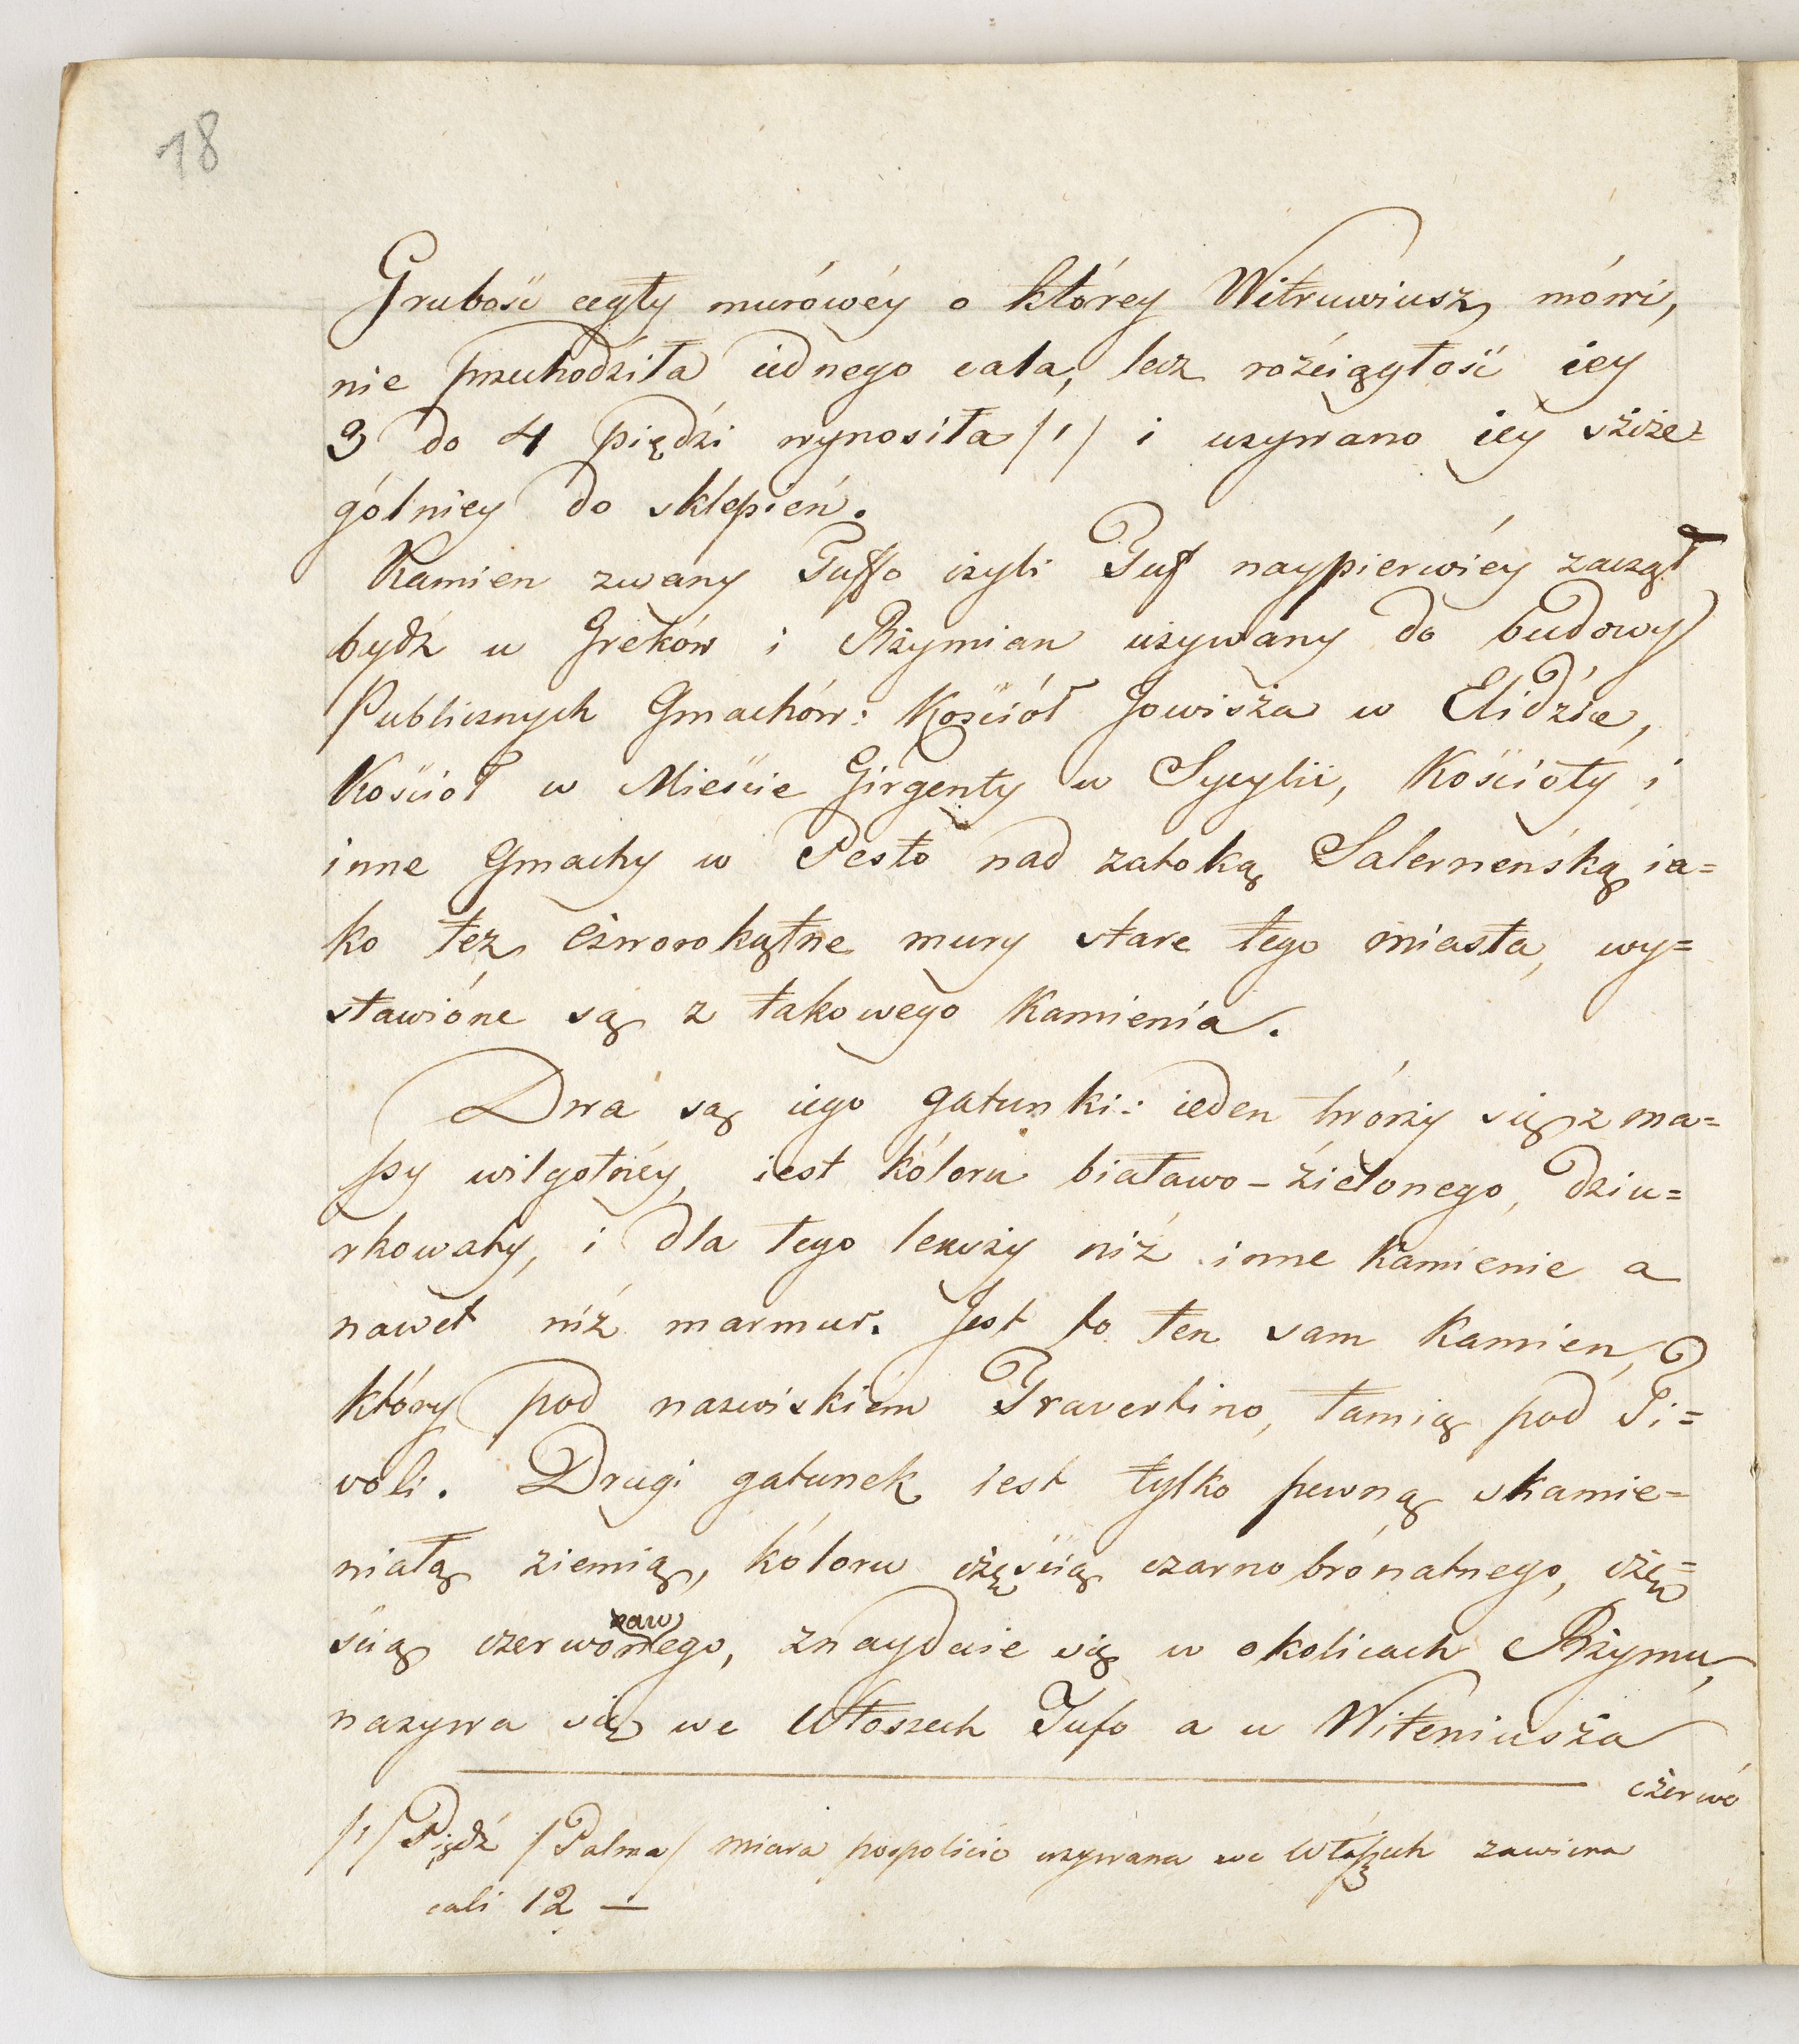 18
Grubość cegły murówéy o którey Witruwiusz mówi,
nie przechodziła iednego cala, lecz rozciągłość iey
3 do 4 piędzi wynosiła /1/ i uzywano iéy szcze=
gólniey do sklepień.
Kamien zwany Tuffo czyli Tuf naypierwiéy zaczął
bydź u Greków i Rzymian uzywany do budowy
Publicznych Gmachów: Kościół Jowisza w Elidzie,
Kościoł w Mieście Girgenty w Sycylii, Kościoły i
inne Gmachy w Pesto nad zatoką Salerneńską ia=
ko też czworokątne mury stare tego miasta, wy=
stawióne są z takowego Kamienia.
Dwa są iego gatunki: ieden tworzy się z ma=
ssy wilgotnéy, iest kóloru białawo-zielonego, dziu=
rkowaty, i dla tego lekszy niż inne Kamienie a
nawet niż marmur. Jest to ten sam Kamien,
który pod nazwiskiem Travertino, łamią pod Ti=
voli. Drugi gatunek iest tylko pewną skamie=
niałą ziemią, kóloru częścią czarno brónatnego, czę=
ścią czerwonego, znayduie się w okolicach Rzymu,
zaw
nazywa się we Włoszech Tufo a u Witeniusza
czerwó
/1/ Piędź /Palma/ miara pospolicie uzywana we Włoszech zawiera
cali 12 —